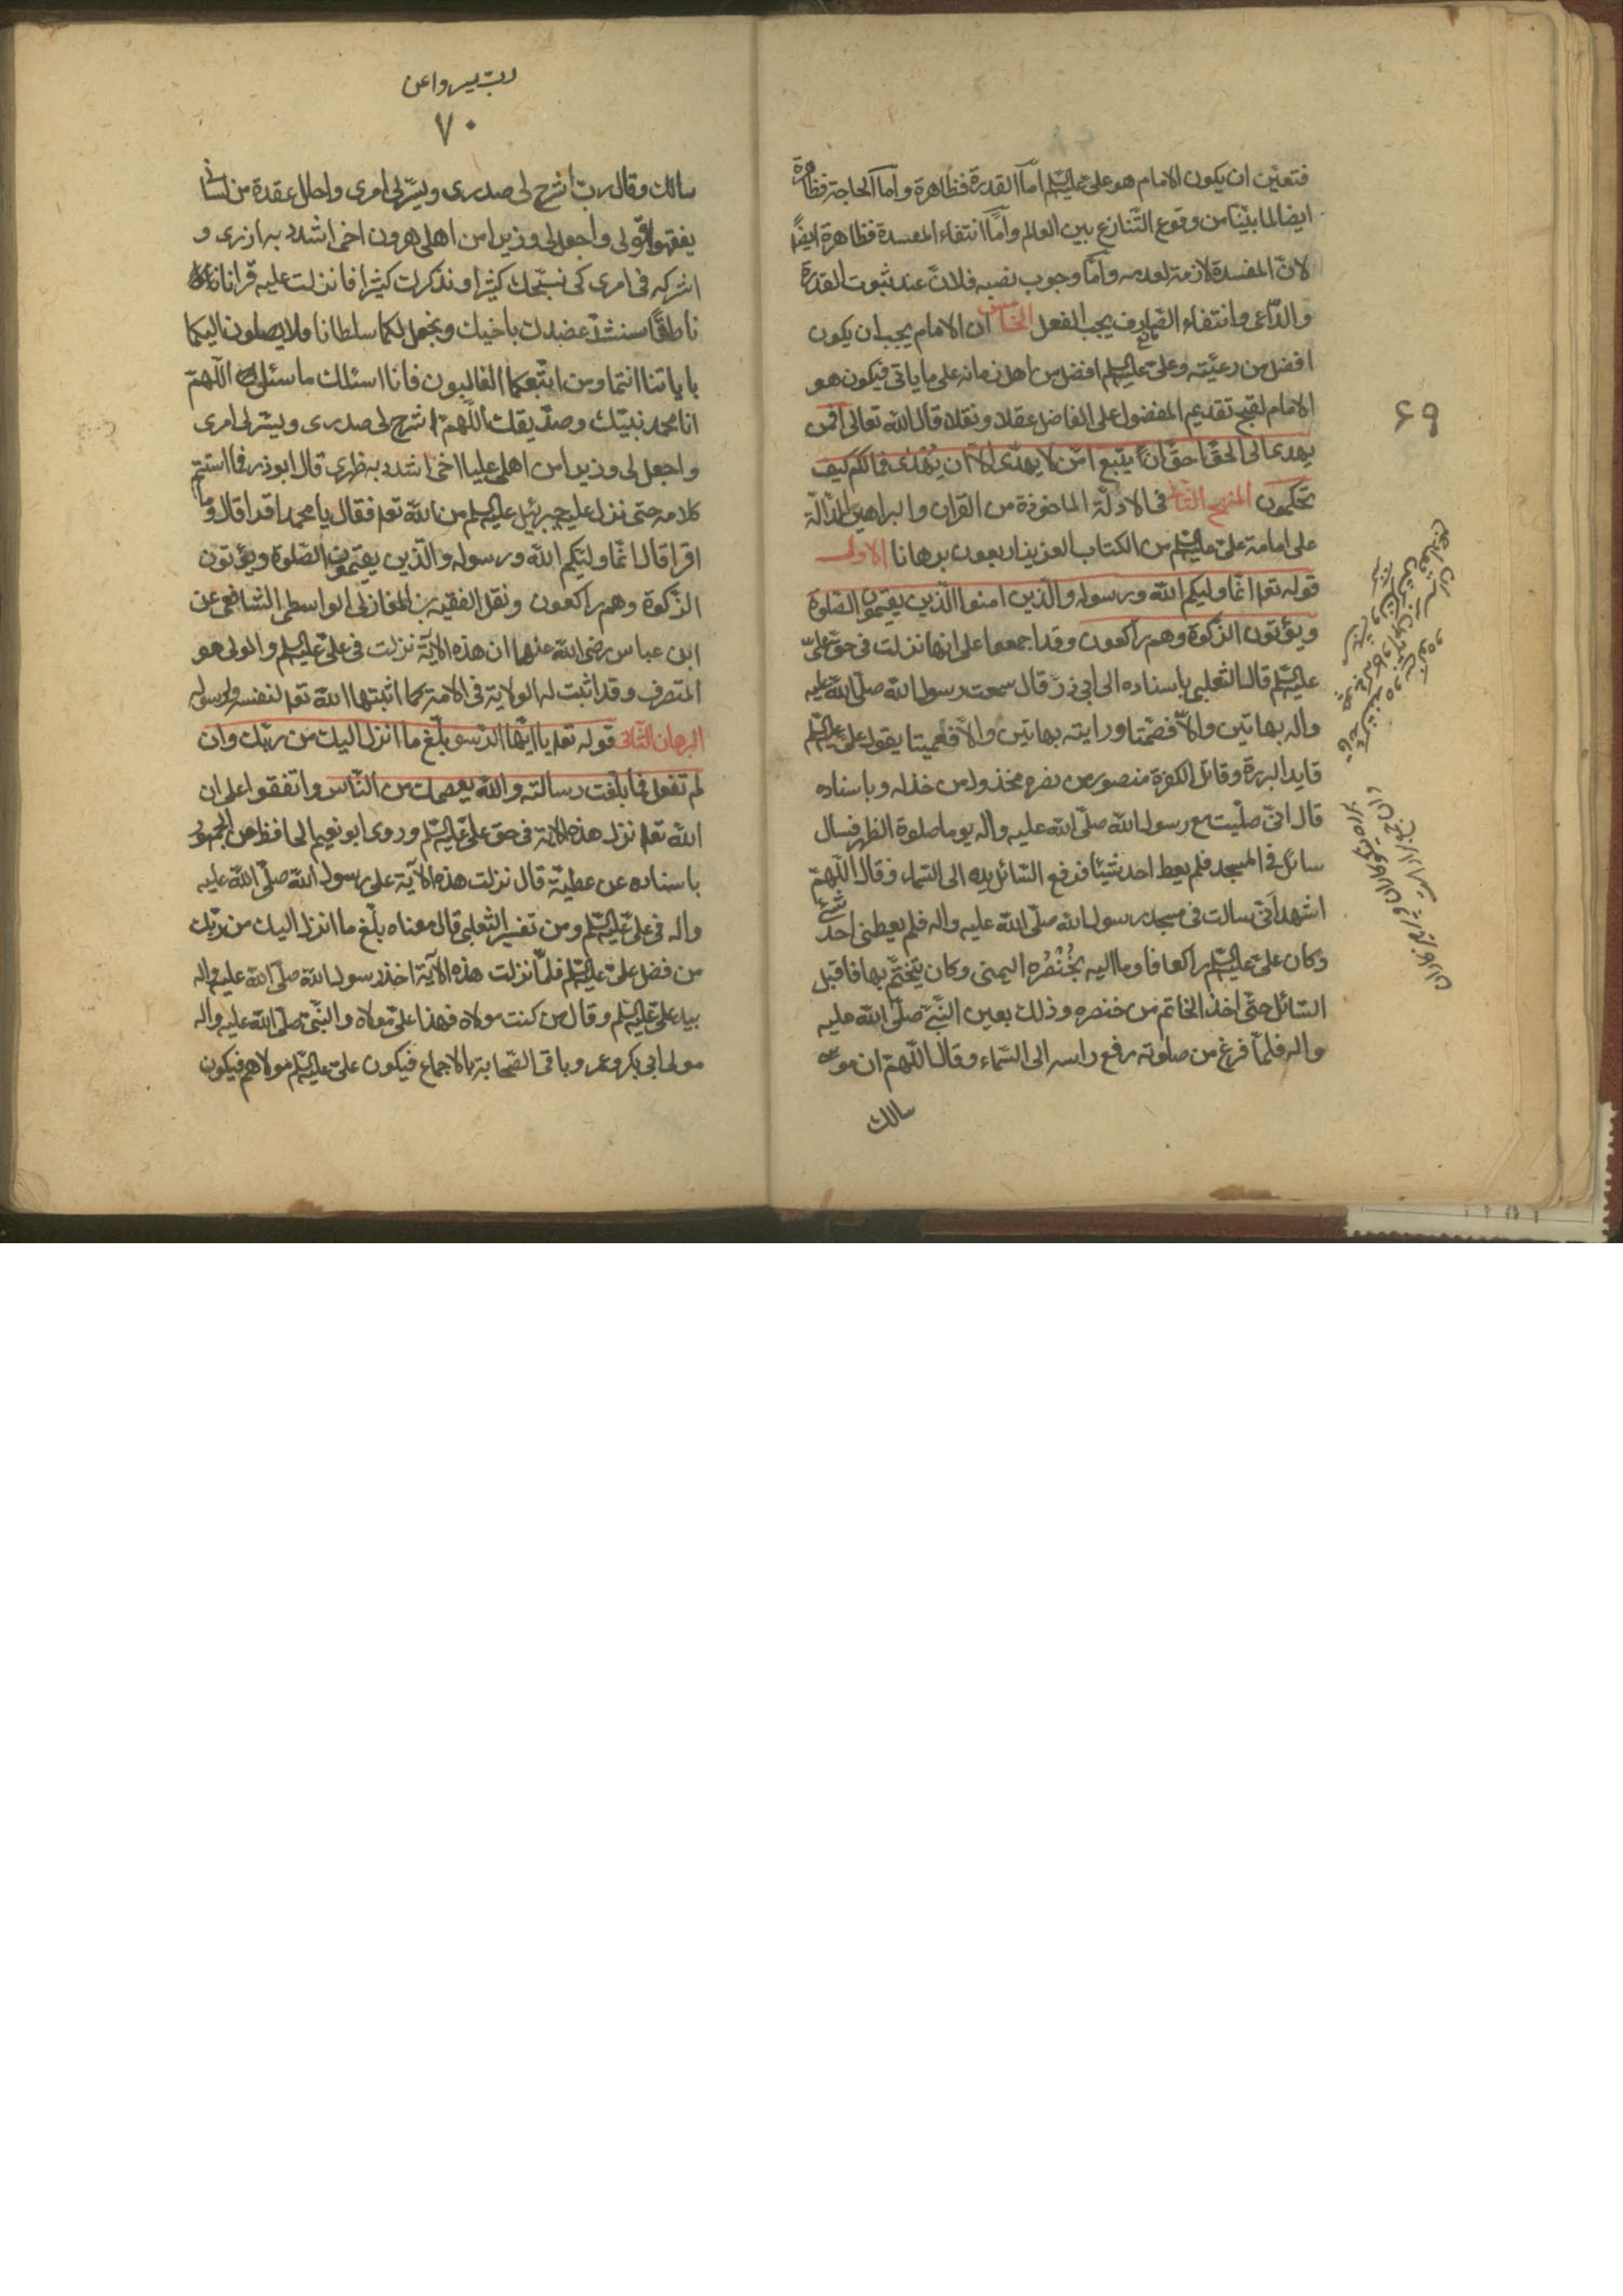 ٦٩
فتعين ان يكون الامام هو على عليه السلم اما القدرة فظاهرة واما الحاجة فظاهرة
ايضا لما بيّنّا من وقوع التّنازع بين العالم وامّا انتفاء المفسدة فظاهرة ايضًا
لانّ المفسدة لازمة لعدمه وامّا وجوب نصبه فلانّ عند ثبوت القدرة
والدّاعى وانتفاء الصّارف يجب الفعل الخامس ان الامام يجب ان يكون
افضل من رعيّته وعلىّ عليه السلم افضل من اهل زمانه على ما ياتى فيكون هو
الامام لقبح تقديم المفضول على الفاضل عقلا ونقلا قال الله تعالى افمن
يهدى الى الحقّ احقّ ان يتّبع امّن لا يهدّى الاّ ان يُهْدٰى فما لكم كيف
تحكمون المنهج الثانى فى الادلّة الماخوذة من القران والبراهين الدّالّة
على امامة علىّ عليه السلم من الكتاب العزيز اربعون برهانا الاول
قوله تعا انّما وليكم الله ورسوله والّذين امنوا الّذين يقيمون الصّلوة
ويؤتون الزّكوة وهم راكعون وقد اجمعوا على انها نزلت فى حقّ علىّ
عليه السلم قال الثعلبى باسناده الى ابى ذرّ قال سمعت رسول الله صلّى الله عليه
واله بهاتين والاّ فصّمتا ورايته بهاتين والاّ فعميتا يقول علىّ عليه السلم
قايد البررة وقاتل الكفرة منصور من نصره مخذول من خذله وباسناده
قال انّى صلّيت مع رسول الله صلّى الله عليه واله يوما صلوة الظهر فسال
سائل فى المسجد فلم يعط احد شيئا فرفع السّائل يده الى السّماء وقال اللّهمّ
اشهد انّى سالت فى مسجد رسول الله صلّى الله عليه واله فلم يعطنى احد شئ
وكان علىّ عليه السلم راكعا فاوما اليه بخُنْصُره اليمنى وكان يتختّم بها فاقبل
السّائل حتّى اخذ الخاتم من خنصره وذلك بعين النّبىّ صلّى الله عليه
واله فلمّا فرغ من صلوته رفع راسه الى السّماء وقال اللّهمّ ان موسى
سالك
٧٠
سالك وقال ربّ اشرح لى صدرى ويسّر لى امرى واحلل عقدة من لسانى
يفقهوا قولى واجعل لى وزيرا من اهلى هرون اخى اشدد به ازرى و
اشركه فى امرى كى نسبّحك كثيرا ونذكرك كثيرا فانزلت عليه قرانا
ناطقًا سنشدّ عضدك باخيك ونجعل لكما سلطانا فلا يصلون اليكما
باياتنا انتما ومن اتّبعكما الغالبون فانا اسئلك ما سئلك اللّهمّ
انا محمد نبيّك وصفّيك اللّهمّ اشرح لى صدرى ويسّر لى امرى
واجعل لى وزيرا من اهلى عليا اخى اشدد به ظهرى قال ابوذر فما استتم
كلامه حتى نزل عليه جبرئيل عليه السلم من الله تعا فقال يا محمد اقرا قال وما
اقرا قال انّما وليّكم الله ورسوله والّذين يقيمون الصّلوة ويؤتون
الزّكوة وهم راكعون ونقل الفقيه بن المغازلى الواسطى الشافعى عن
ابن عباس رضى الله عنهما ان هذه الاية نزلت فى علىّ عليه السلم والمولى هو
المتصرف وقد اثبت له الولاية فى الامة كما اثبتها الله تعا لنفسه ولرسوله
البرهان الثّانى قوله تعا يا ايّها الرّسول بلّغ ما انزل اليك من ربّك وان
لم تفعل فما بلّغت رسالته والله يعصمك من النّاس واتفقوا على ان
الله تعا نزل هذه الاية فى حقّ علىّ عليه السلم وروى ابو نعيم الحافظ من الجمهور
باسناده عن عطيّة قال نزلت هذه الاية على رسول الله صلّى الله عليه
واله فى علىّ عليه السلم ومن تفسير الثعلبى قال معناه بلّغ ما انزل اليك من ربّك
من فضل علىّ عليه السلم فلمّا نزلت هذه الاية اخذ رسول الله صلّى الله عليه واله
بيد علىّ عليه السلم وقال من كنت مولاه فهذا علىّ مولاه والنبّىّ صلّى الله عليه واله
مولى ابى بكر وعمر وباقى الصّحابة بالاجماع فيكون علىّ عليه السلم مولاهم فيكون